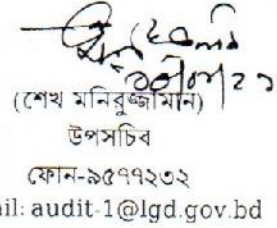 (শেখ মনিরুজ্জামান)
উপসচিব
ফোন-৯৫৭৭২৩২
ail: audit-1@lgd.gov.bd